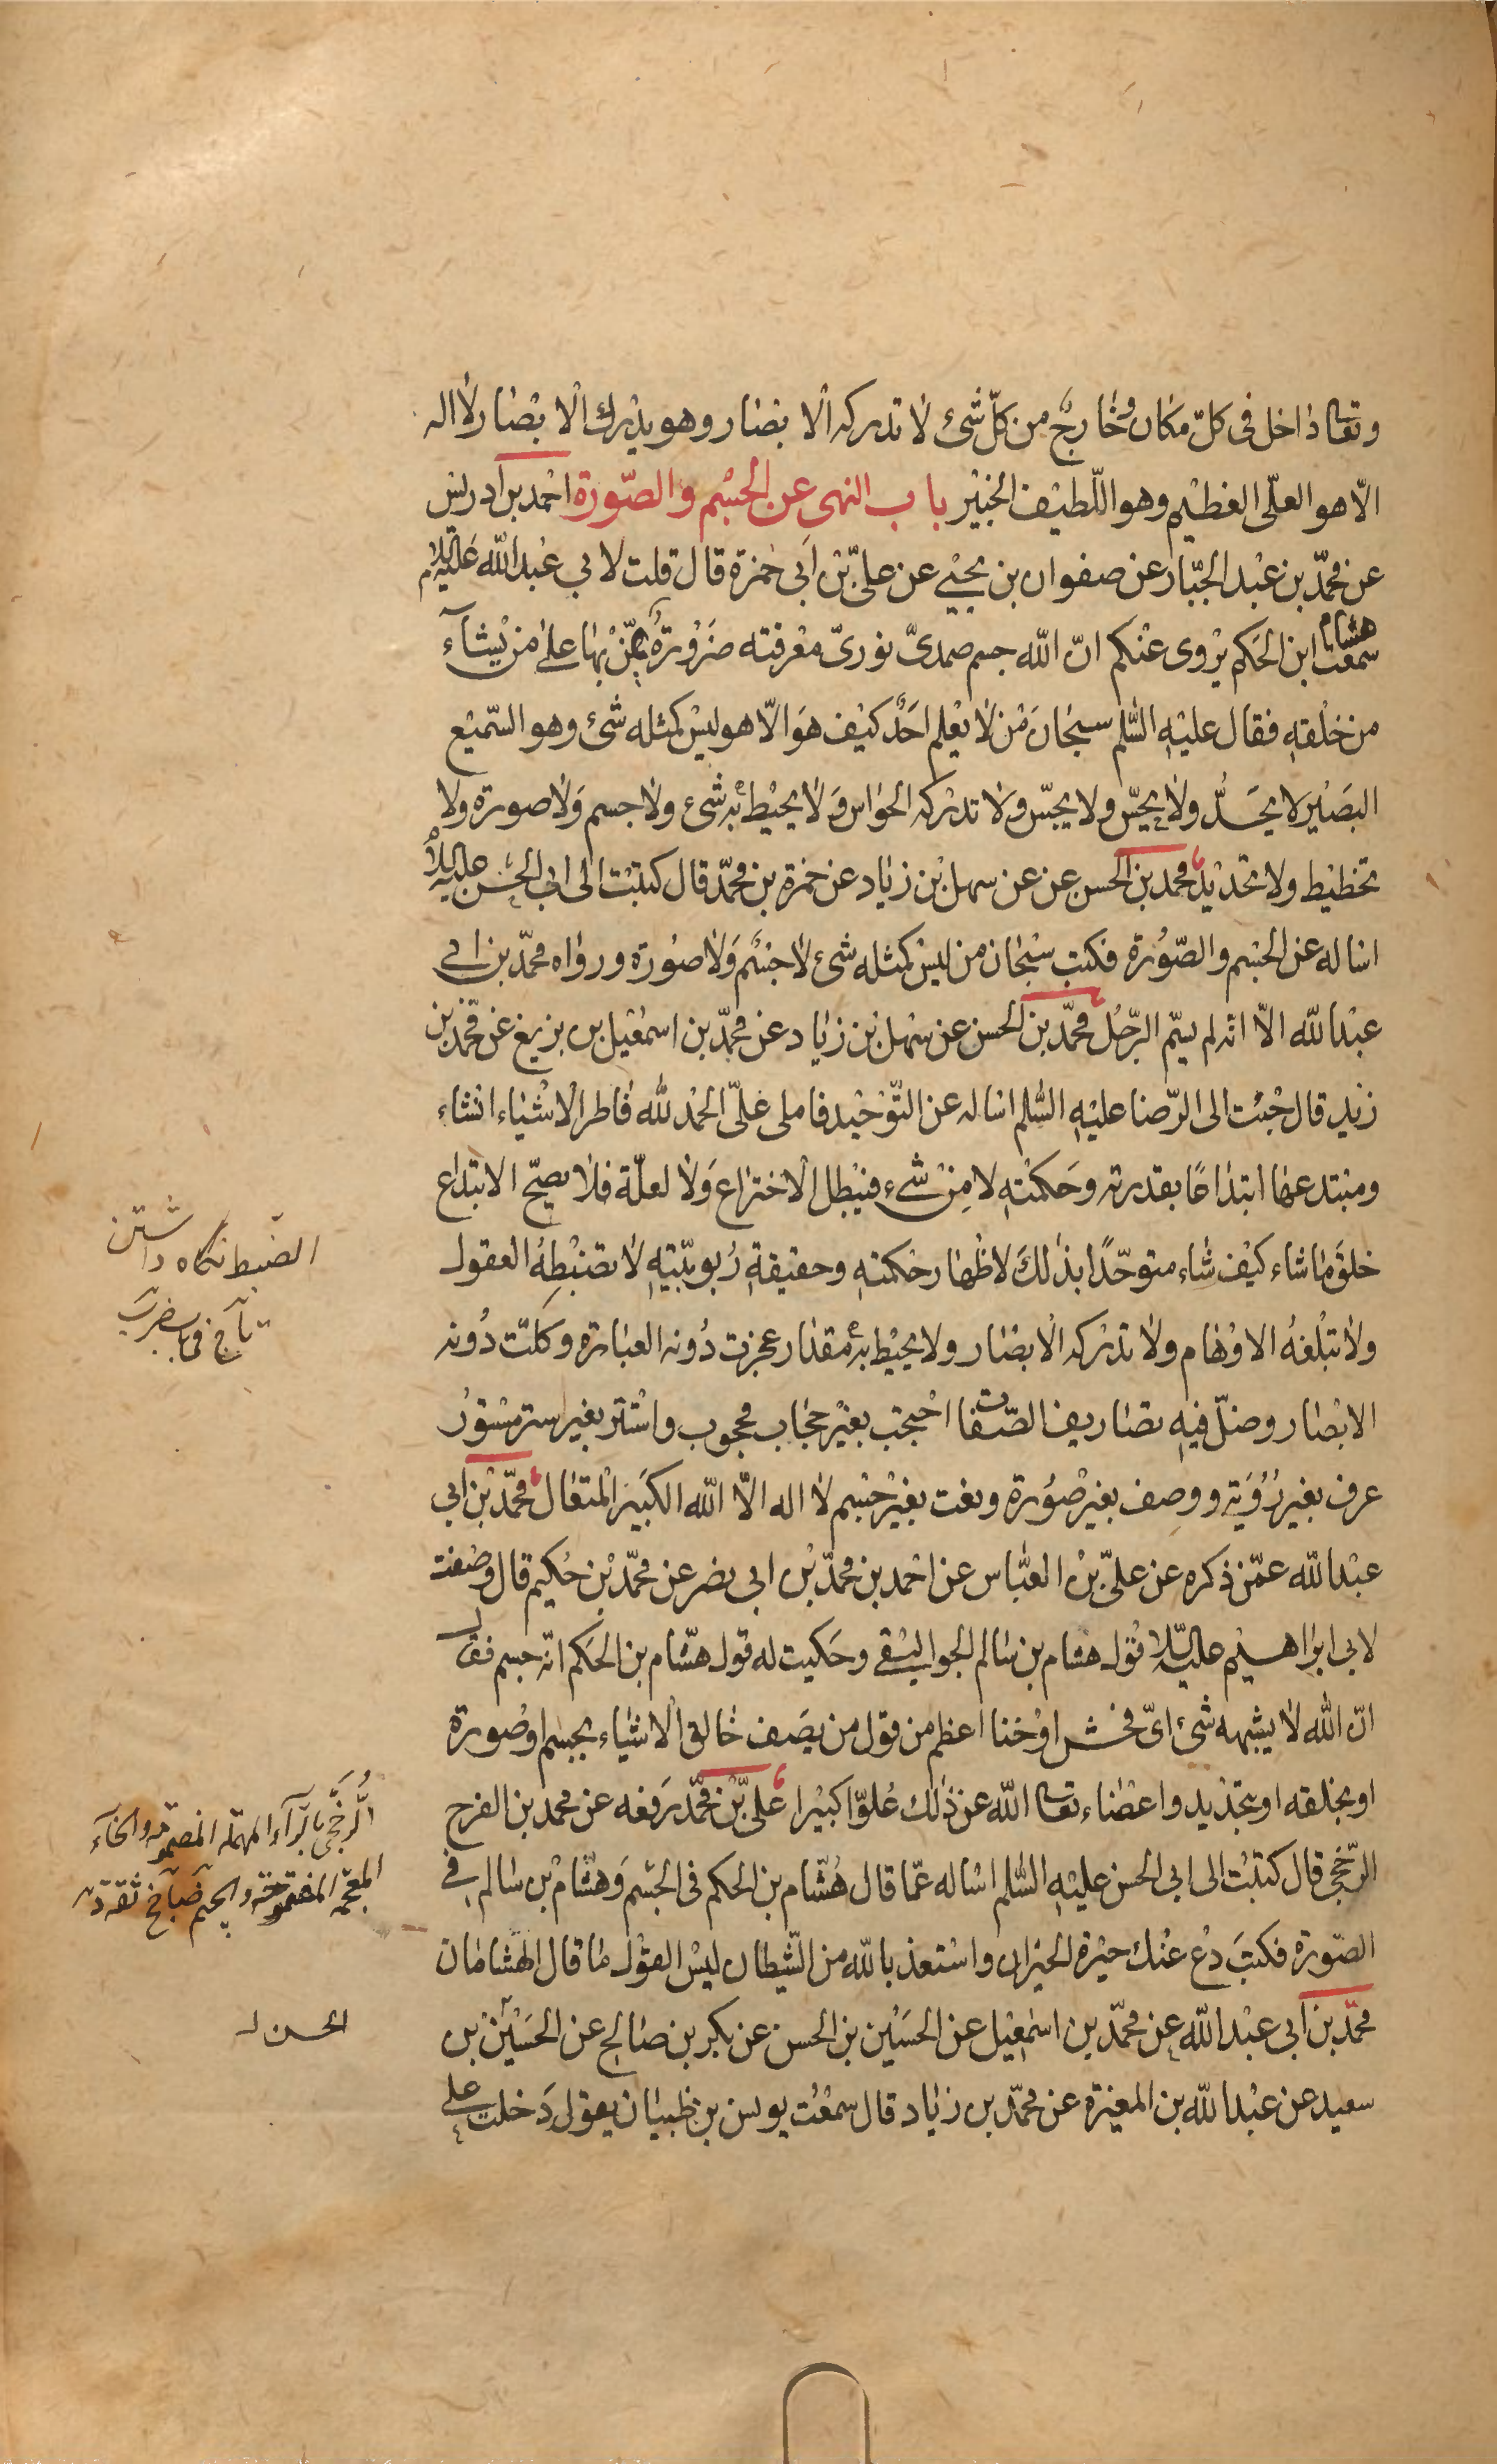 وتعا داخل فى كلّ مكان وخارج من كلّ شئ لا تدركه الابصار وهو يدرك الابصار لا اله
الّا هو العلّى العظيم وهو اللّطيف الخبير باب النهى عن الجسم والصّورة احمد بن ادريس
عن محمّد بن عبد الجبّار عن صفوان بن يحيي عن علىّ بن ابى حمزة قال قلت لابي عبد الله عليه السلام
سمعت هشام ابن الحكم يروى عنكم انّ الله جسم صمدىّ نورىّ معرفته ضرورة يمّن بها على من يشآء
من خلقه فقال عليه السّلم سبحان من لا يعلم احد كيف هو الّا هو ليس كمثله شئ وهو السّميع
البصير لا يحدّ ولا يحسّ ولا يجسّ ولا تدركه الحواس ولا يحيط به شىء ولا جسم ولا صورة ولا
تخطيط ولا تحديد محمد بن الحسن عن عن سهل بن زياد عن حمزة بن محمّد قال كتبت الى ابى الحسن عليه السلام
اساله عن الجسم والصّورة فكتب سبحان من ليس كمثله شئ لا جسم ولا صورة ورواه محمّد بن ابى
عبد الله الّا انّه لم يسّم الرّجل محمّد بن الحسن عن سهل بن زياد عن محمّد بن اسمعيل بن بزيع عن محمّد بن
زيد قال جئت الى الرّضا عليه السّلم اساله عن التّوحيد فاملى علىّ الحمد لله فاطر الاشياء انشاء
ومبتدعها ابتداعًا بقدرته وحكمته لا من شىء فيبطل الاختراع ولا لعلّة فلا يصحّ الابتداع
خلق ما شاء كيف شاء متوحّدًا بذلك لاظهار حكمته وحقيقة ربوبيّته لا تضبطه العقول
ولا تبلغه الاوهام ولا تدركه الابصار ولا يحيط به مقدار عجزت دونه العبارة وكلّت دونه
الابصار وضلّ فيه تصاريف الصّفات احتجب بغير حجاب محجوب واستتر بغير ستر مستور
عرف بغير رؤية ووصف بغير صورة ونعت بغير جسم لا اله الّا الله الكبير المتعال محمّد بن ابى
عبد الله عمّن ذكره عن علىّ بن العبّاس عن احمد بن محمّد بن ابى نصر عن محمّد بن حكيم قال وصفت
لابى ابراهيم عليه السلام قول هشام بن سالم الجواليقى وحكيت له قول هشام بن الحكم انّه جسم فقال
انّ الله لا يشبهه شئ اىّ فحش او خنا اعظم من قول من يصف خالق الاشياء بجسم او صورة
او بخلقه او بتحديد واعضاء تعالى الله عن ذلك علوّا كبيرا علىّ بن محمّد رفعه عن محمد بن الفرج
الرّخجى قال كتبت الى ابى الحسن عليه السّلم اساله عمّا قال هشام بن الحكم فى الجسم وهشام بن سالم فى
الصّورة فكتب دع عنك حيرة الحيران واستعذ بالله من الشّيطان ليس القول ما قال الهشامان
محمّد بن ابى عبد الله عن محمّد بن اسمعيل عن الحسين بن الحسن عن بكر بن صالح عن الحسين بن
سعيد عن عبد الله بن المغيرة عن محمّد بن زياد قال سمعت يونس بن ظبيان يقول دخلت على
الضبط نگاه داشتن
الرّخّجى بالرّآء المهملة المضمومة والخآء
المعجمة المفتوحة والجيم
الحسن